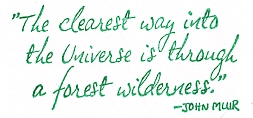 "The clearest way into
the Universe is through
a forest wilderness."
—JOHN MUIR